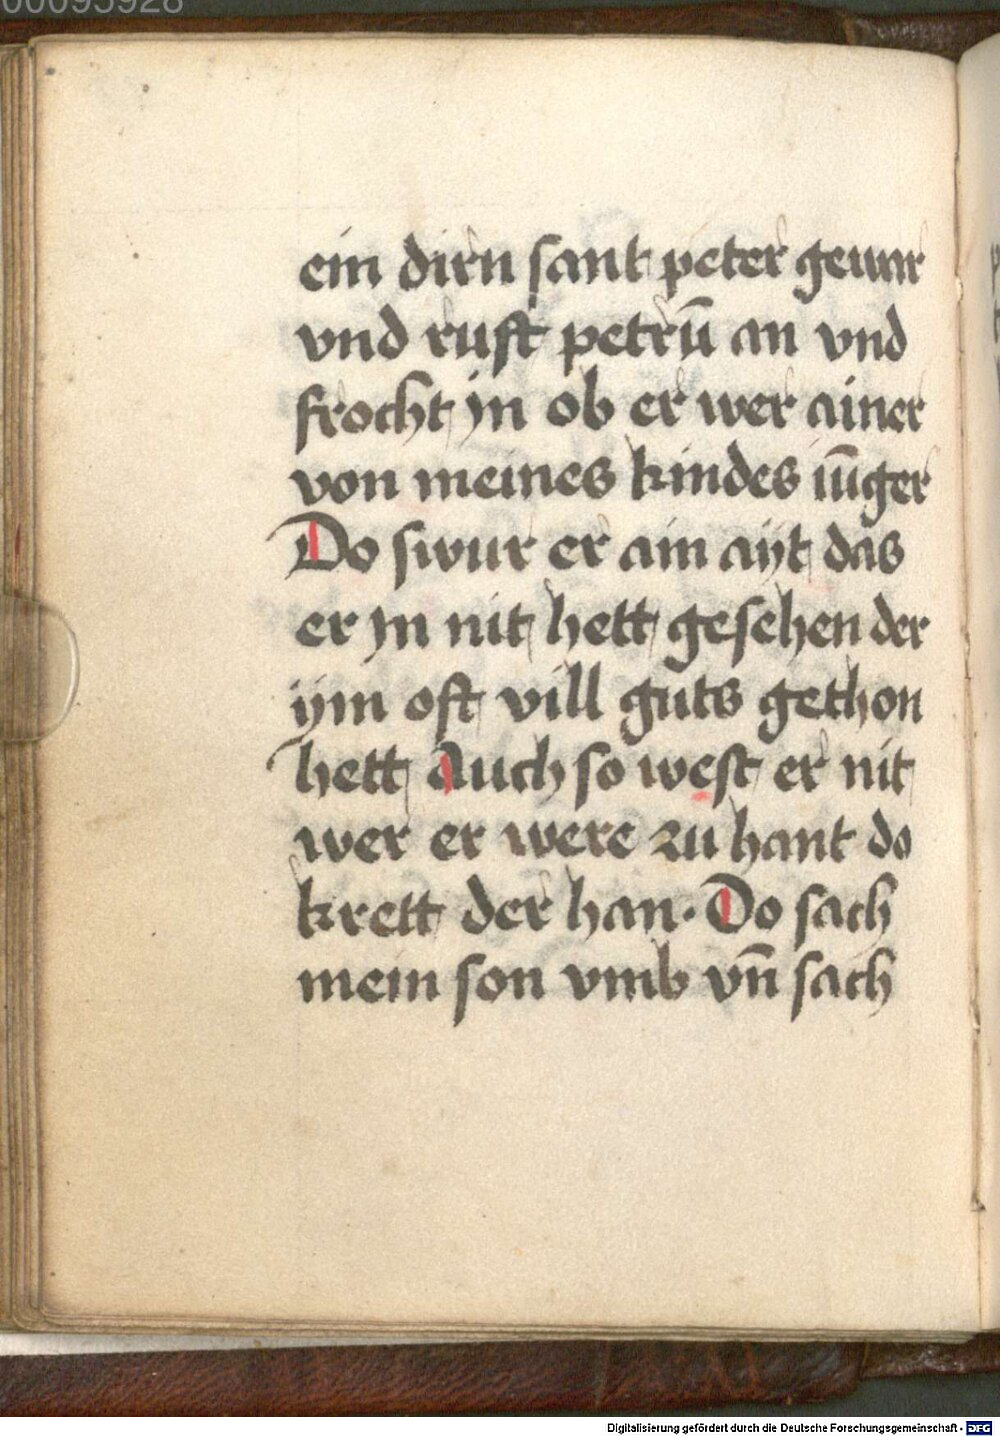 00095928
ein dirn sant peter gewar
vnd ruft petrū an vnd
frocht in ob er wer ainer
von meines kindes iūger
Do swur er ain ayt das
er in nit hett gesehen der
ym oft vill guts gethon
hett Auch so west er nit
wer er were zu hant do
krett der han· Do sach
mein son vmb vn̄ sach
Digitalisierung gefördert durch die Deutsche Forschungsgemeinschaft - DFG